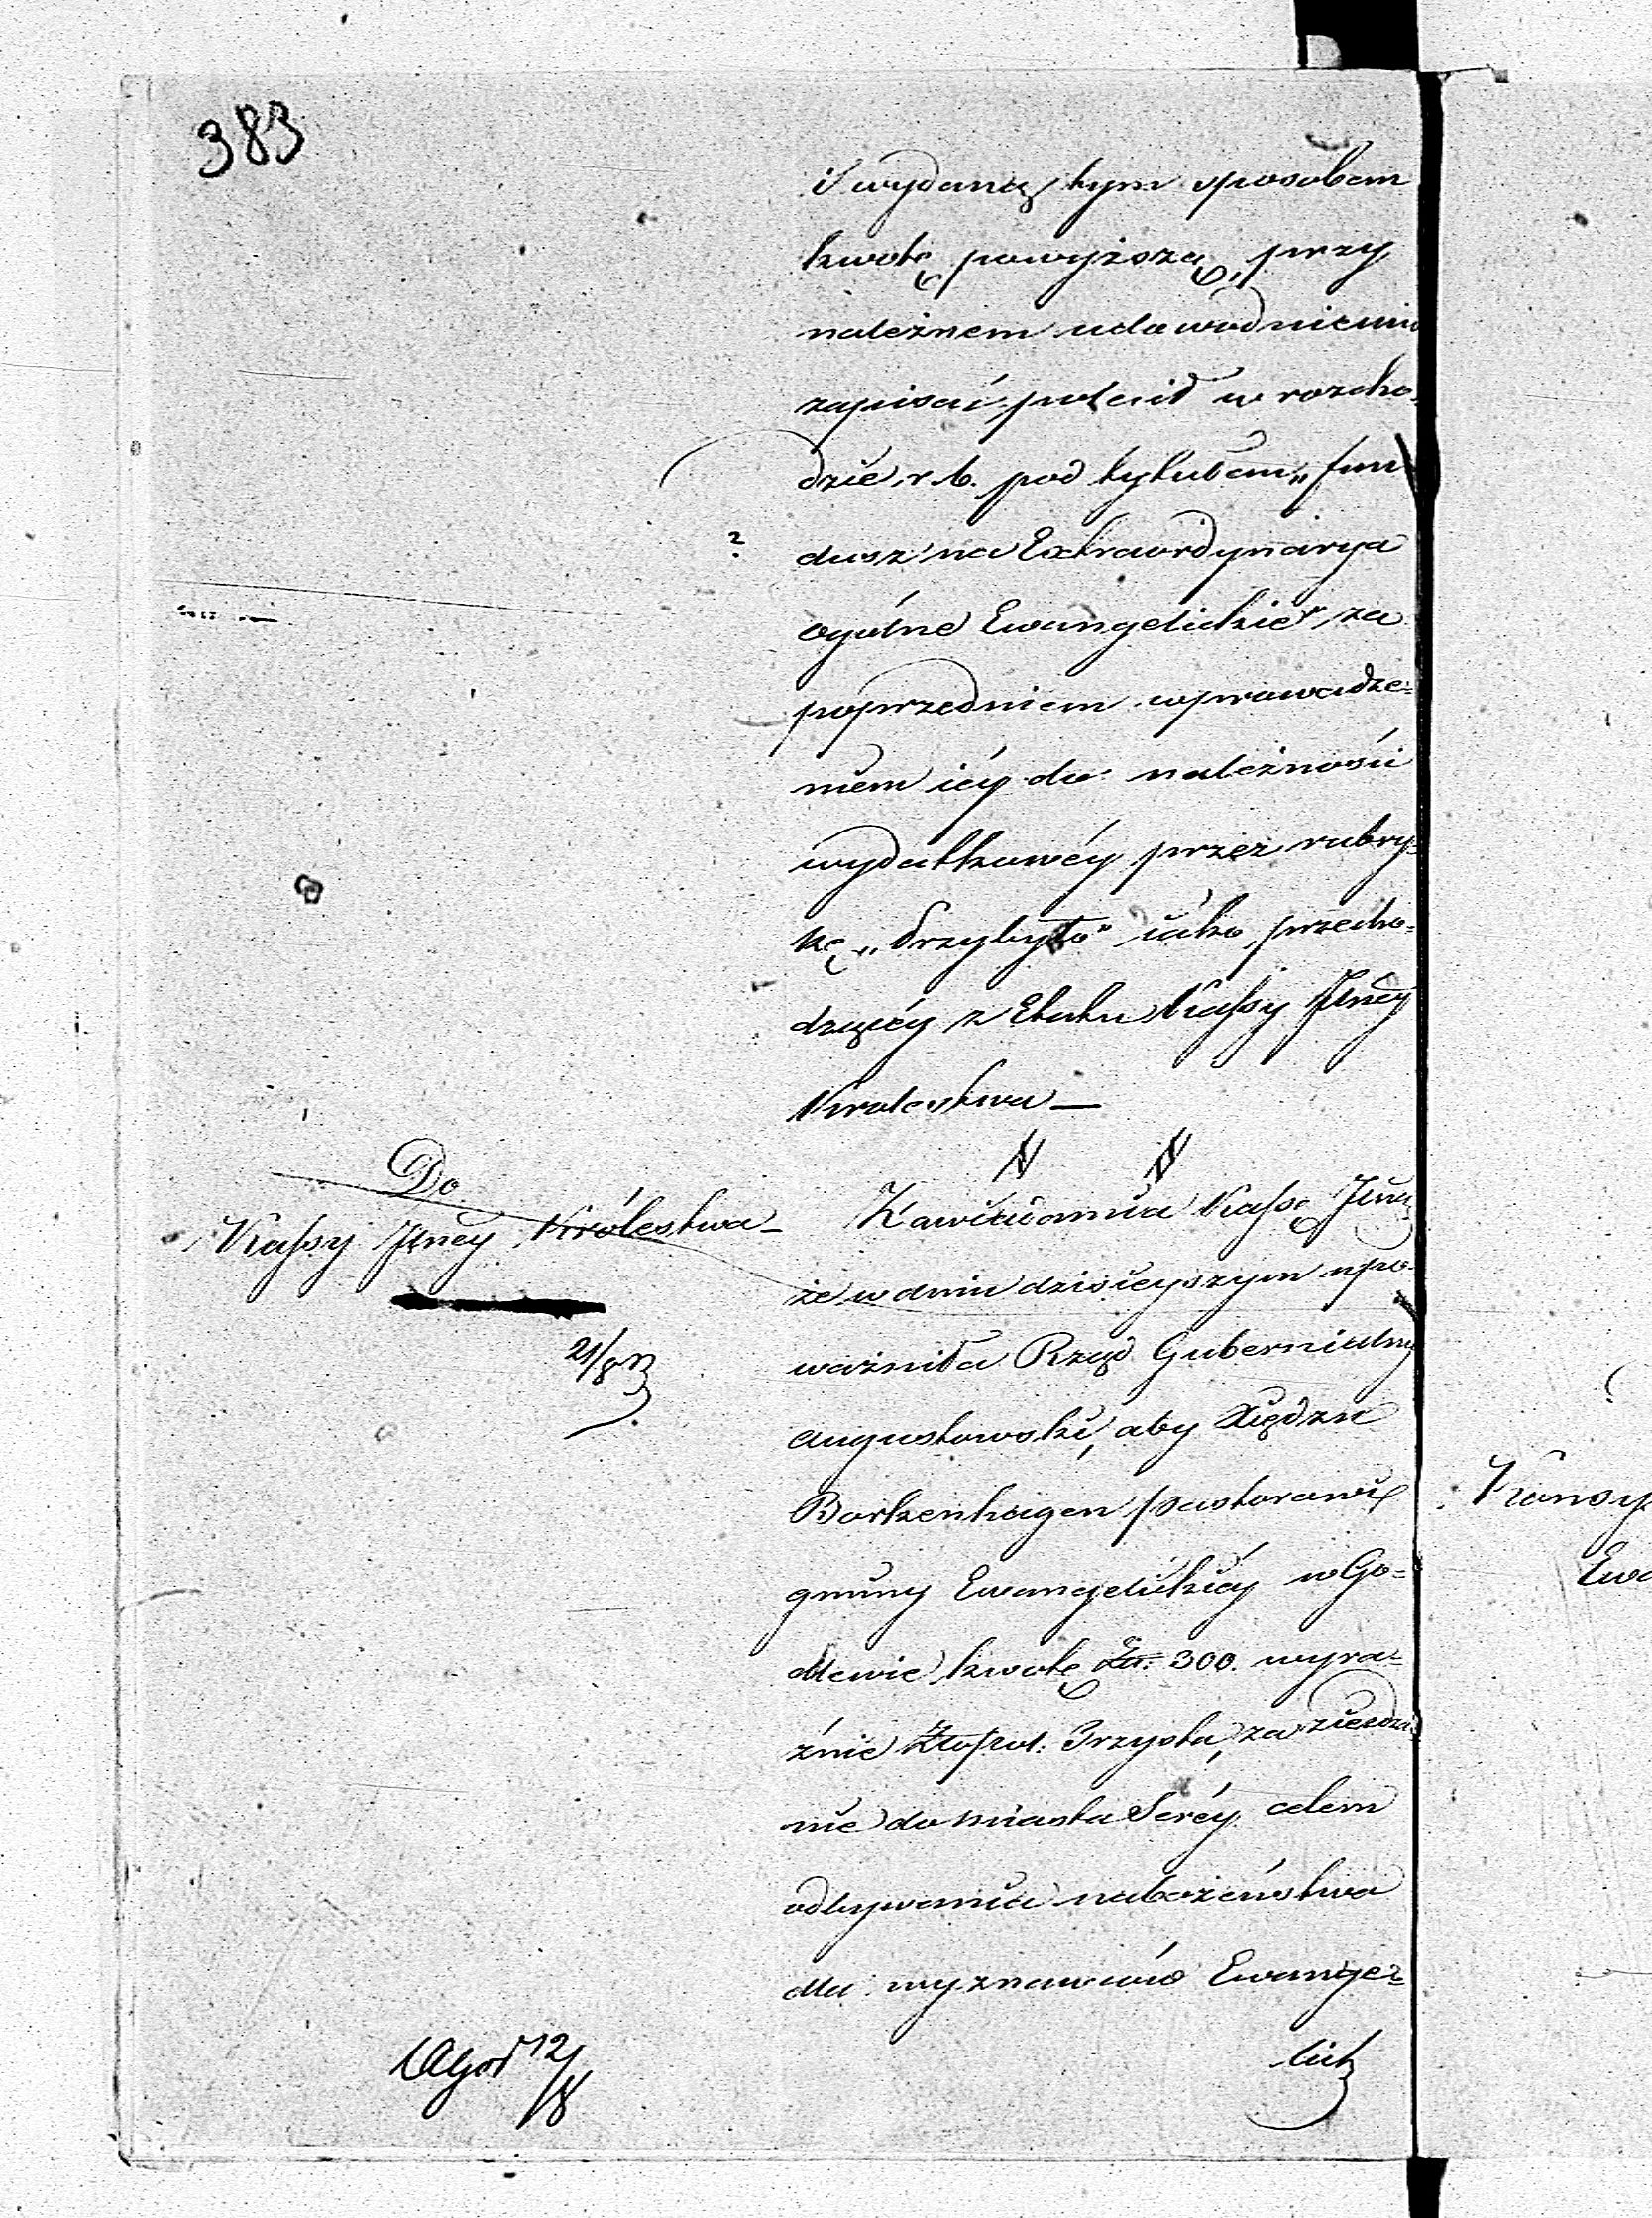 383
i wydaną tym sposobem
kwotę powyższą, przy
należnem udowodnieniu
zapisać polecił w rozcho-
dzie r. b. pod tytułem „fun
dusz na Extraordynarya
ogólne Ewangelickie" za
poprzedniem wprowadze-
niem iéy do należności
wydatkowéy przez rubry-
kę „Przybyło" iako przecho-
dzącéy z Etatu Kassy Jłnéy
Krolestwa —
Do
Kassy Jłnéy Królestwa —
21/8
Zawiadamia Kassę Jłną
że w dniu dzisieyszym upo-
ważniła Rząd Gubernialny
Augustowski, aby Xiędzu
Borkenhagen pastorowi
gminy Ewangelickiéy w Go-
dlewie kwotę Zł: 300. wyra-
źnie Złopol: Trzysta, za zieżdża
nie do miasta Seréy celem
odbywania nabożeństwa
dla wyznawców Ewange-
lick
12/8
Konsy
Ewa